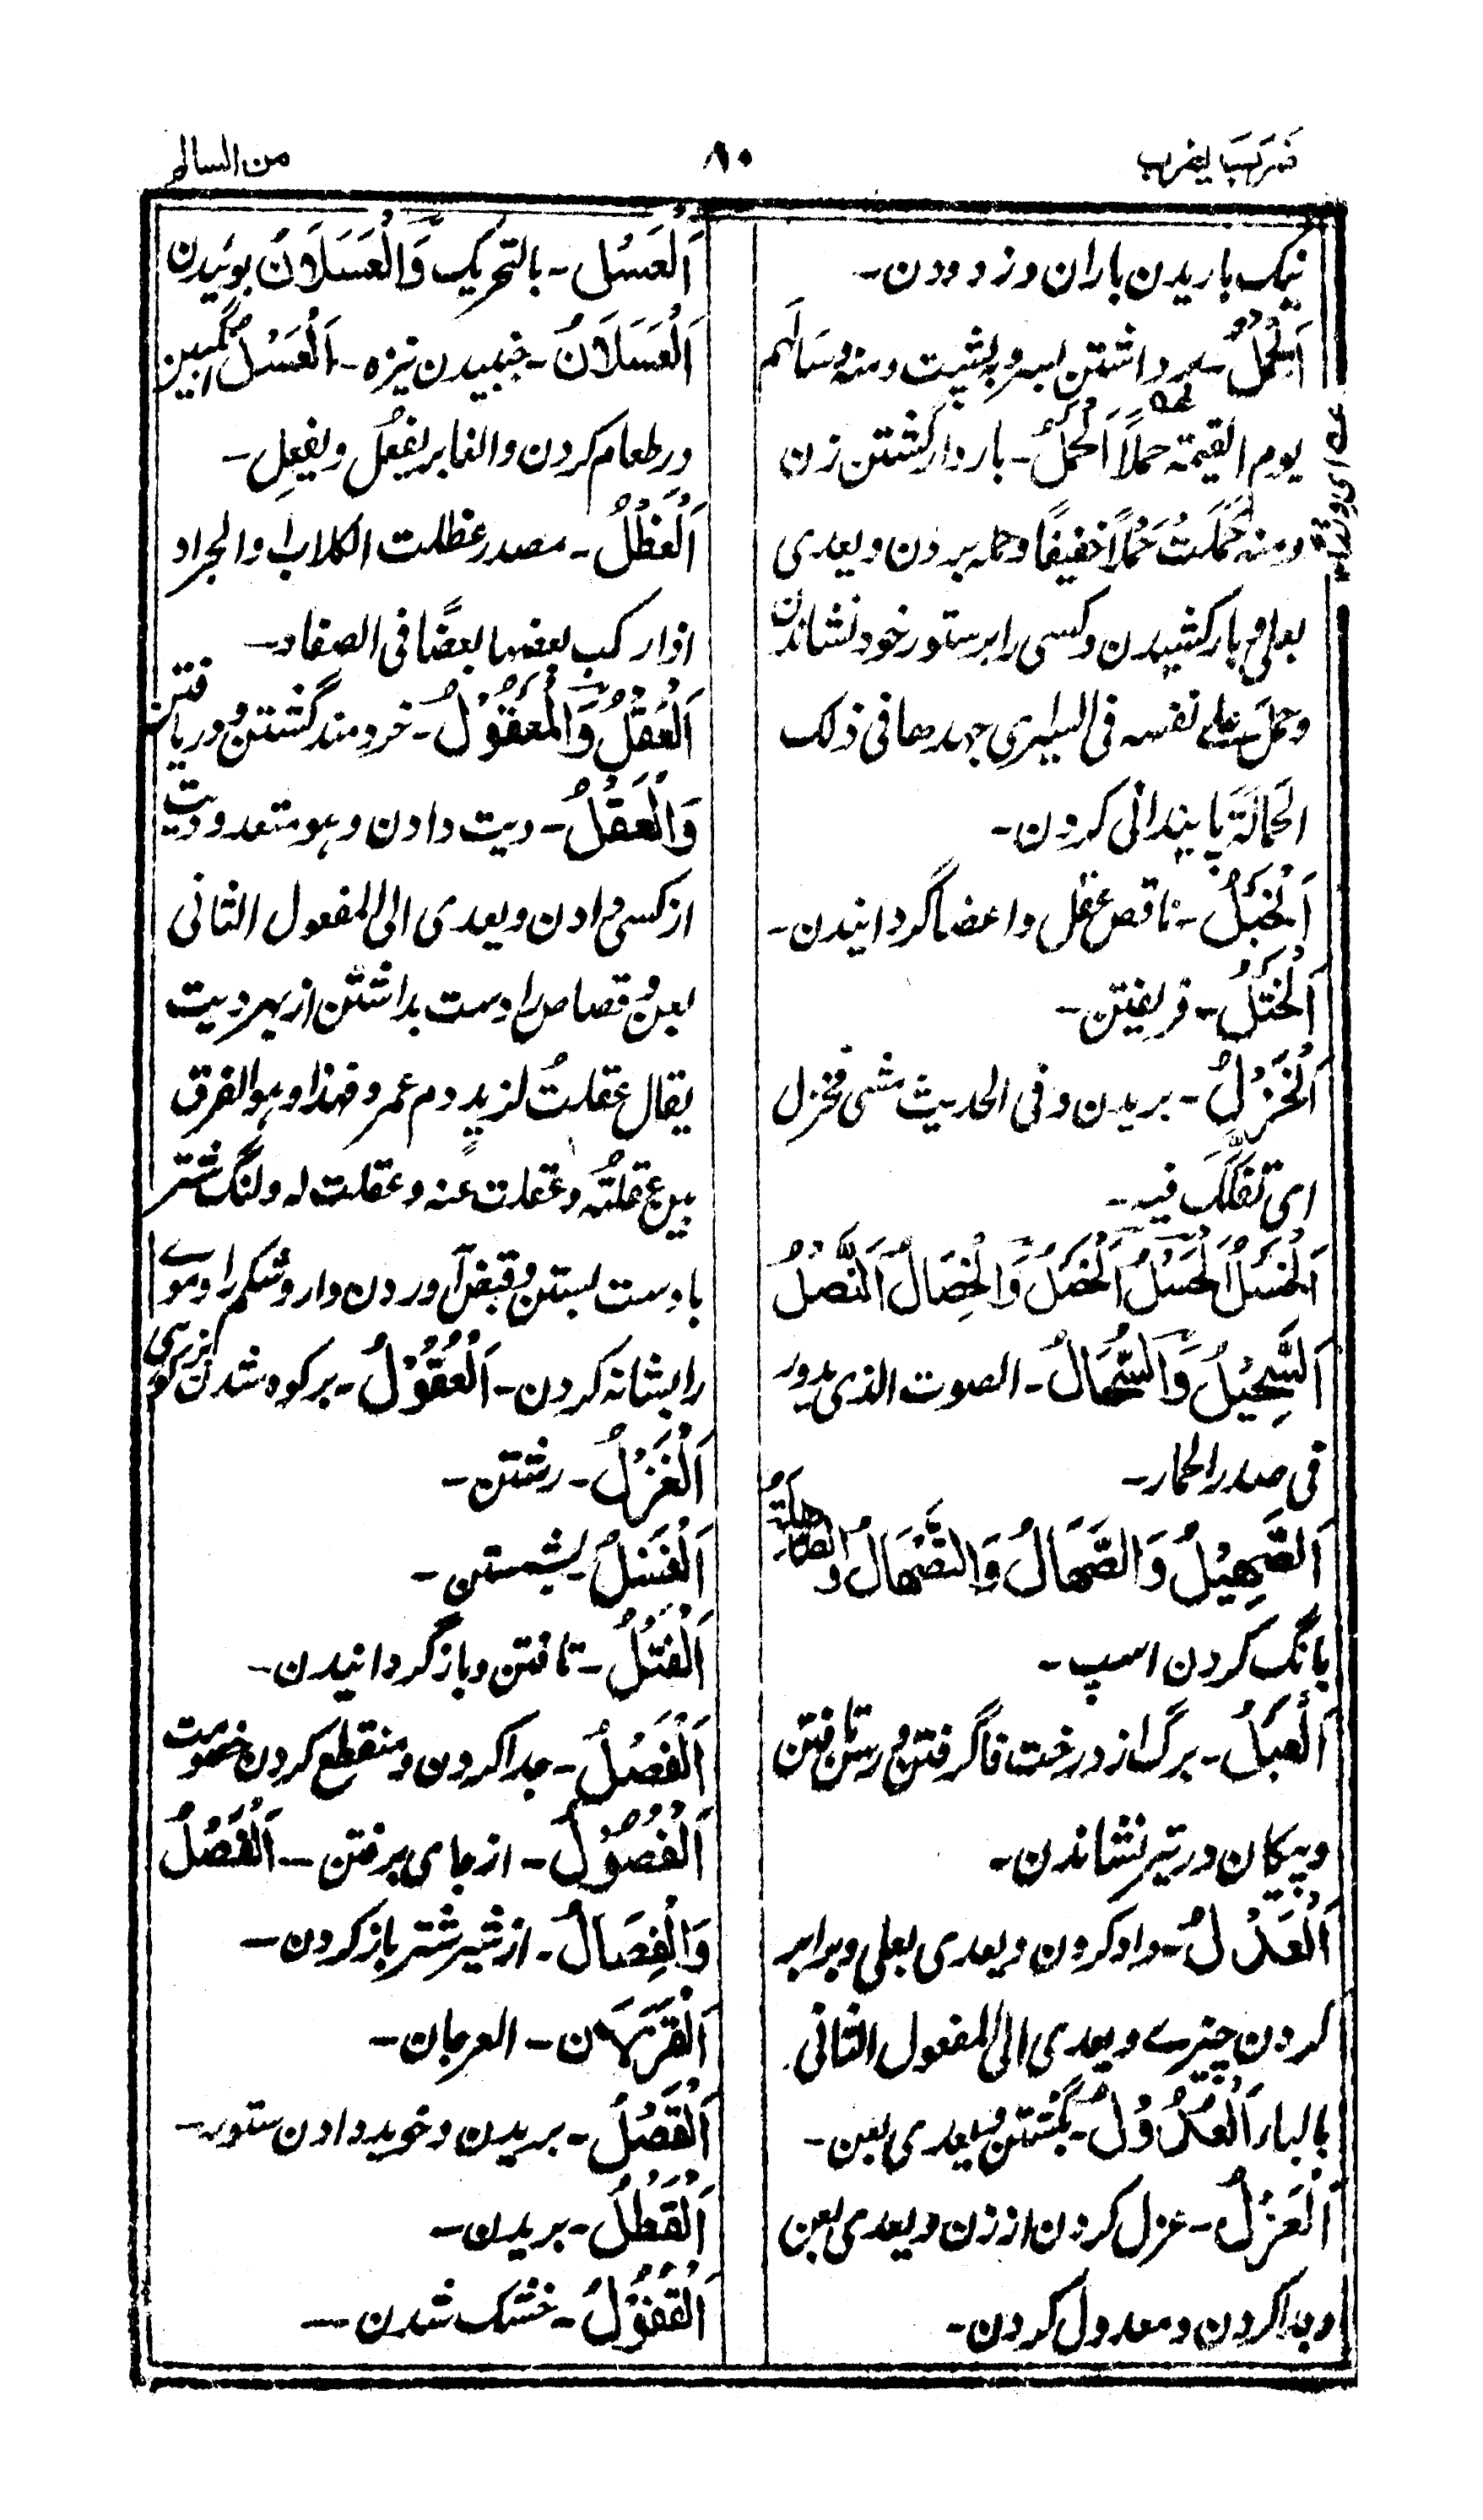 ضَرَبَ یضرب
۸۰
من السالم
نیک باریدن باران و زدودن۔
اَلْحَمْلُ۔ برداشتن بسر و بپشت ومنه وسَآلهم
یوم القیمة حملًا اَلْحَمْلُ۔ باردار گشتن زن
ومنه حَمَلَتْ حَمْلًا خَفِیفًا و حمله بردن و یعدی
بعلی و بار کشیدن و کسی را بر ستور خود نشاندن
وحمل علی نفسه فی السیر ای جهدها فی ذلک
الحَمَالَة پایندانی کردن۔
اَلْخَبْلُ۔ ناقص عقل و اعضا گردانیدن۔
اَلْخَتْلُ۔ فریفتن۔
اَلْخَزْلُ۔ بریدن وفی الحدیث مشی فخزل
ای تفکک فیه۔
اَلْخَسْلُ اَلْحَسْلُ اَلْخَصْلُ وَالْخِصَالُ اَلنَّضْلُ
اَلسَّحِیْلُ وَالسُّحَالُ۔ الصوت الذی یدور
فی صدر الحمار۔
اَلصَّهِیْلُ وَالصُّهَالُ وَالتَّصْهَالُ وَالصَّاهِلَةُ
بانگ کردن اسپ۔
اَلْعَبْلُ۔ برگ از درخت فاگرفتن و رسن تافتن
و پیکان در تیر نشاندن۔
اَلْعَدْلُ۔ داد کردن و یعدی بعلی و برابر
کردن چیزے و یعدی الی المفعول الثانی
بالباء اَلْعُدُوْلُ۔ بگشتن و یعدی بعن۔
اَلْعَزْلُ۔ عزل کردن از زن و یعدی بعن
و جدا کردن و معدول کردن۔
اَلْعَسَلُ۔ بالتحریک وَالْعَسَلَانُ پوئیدن
اَلْعَسَلَانُ۔ جنبیدن نیزه۔ اَلْعَسْلُ انگبین
در طعام کردن والغابر یفعُل ویفعِل۔
اَلْعَظْلُ۔ مصدر عظلت الکلاب والجراد
اذا رکب بعضها بعضًا فی الصفاد۔
اَلْعَقْلُ وَالْمَعْقُوْلُ۔ خردمند گشتن و دریافتن
وَالْعَقْلُ۔ دیت دادن و هو متعد و دیت
از کسی دادن و یعدی الی المفعول الثانی
بعن و قصاص را دست بداشتن از بهر دیت
یقال عقلتُ لزید دم عمرو فهذا و هو الفرق
بین عقلتُه و عقلت عنه و عقلت له و لنگ شتر
با دست بستن و قبض آوردن دارو شکم را و موے
را بشانه کردن۔ اَلْعُقُوْلُ۔ بر کوه شدن بز کوهی
اَلْغَزْلُ۔ رشتن۔
اَلْغَسْلُ۔ بشستن۔
اَلْفَتْلُ۔ تافتن و بازگردانیدن۔
اَلْفَصْلُ۔ جدا کردن و منقطع کردن خصومت
اَلْفُصُوْلُ۔ از جای برفتن۔ اَلْفَصْلُ
وَالْفِصَالُ۔ از شیر شتر باز کردن۔
اَلْقَزَلَان۔ العرجان۔
اَلْقَصْلُ۔ بریدن و خوید دادن ستور۔
اَلْقَطْلُ۔ بریدن۔
اَلْقُفُوْلُ۔ خشک شدن۔